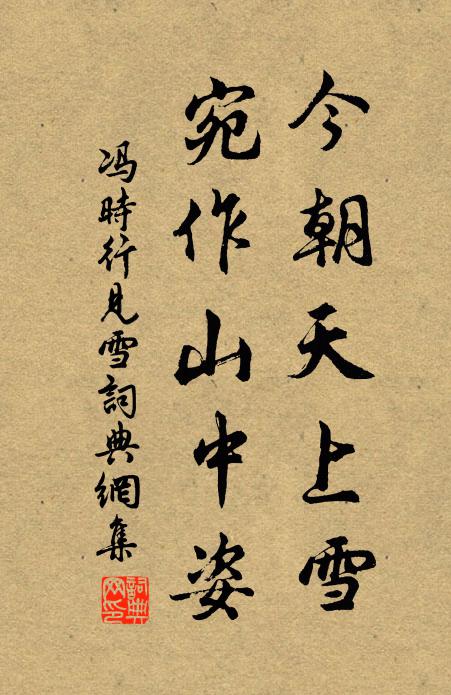 今朝天上雪
宛作山中姿
冯時行見雪詞典網集
詞典网印